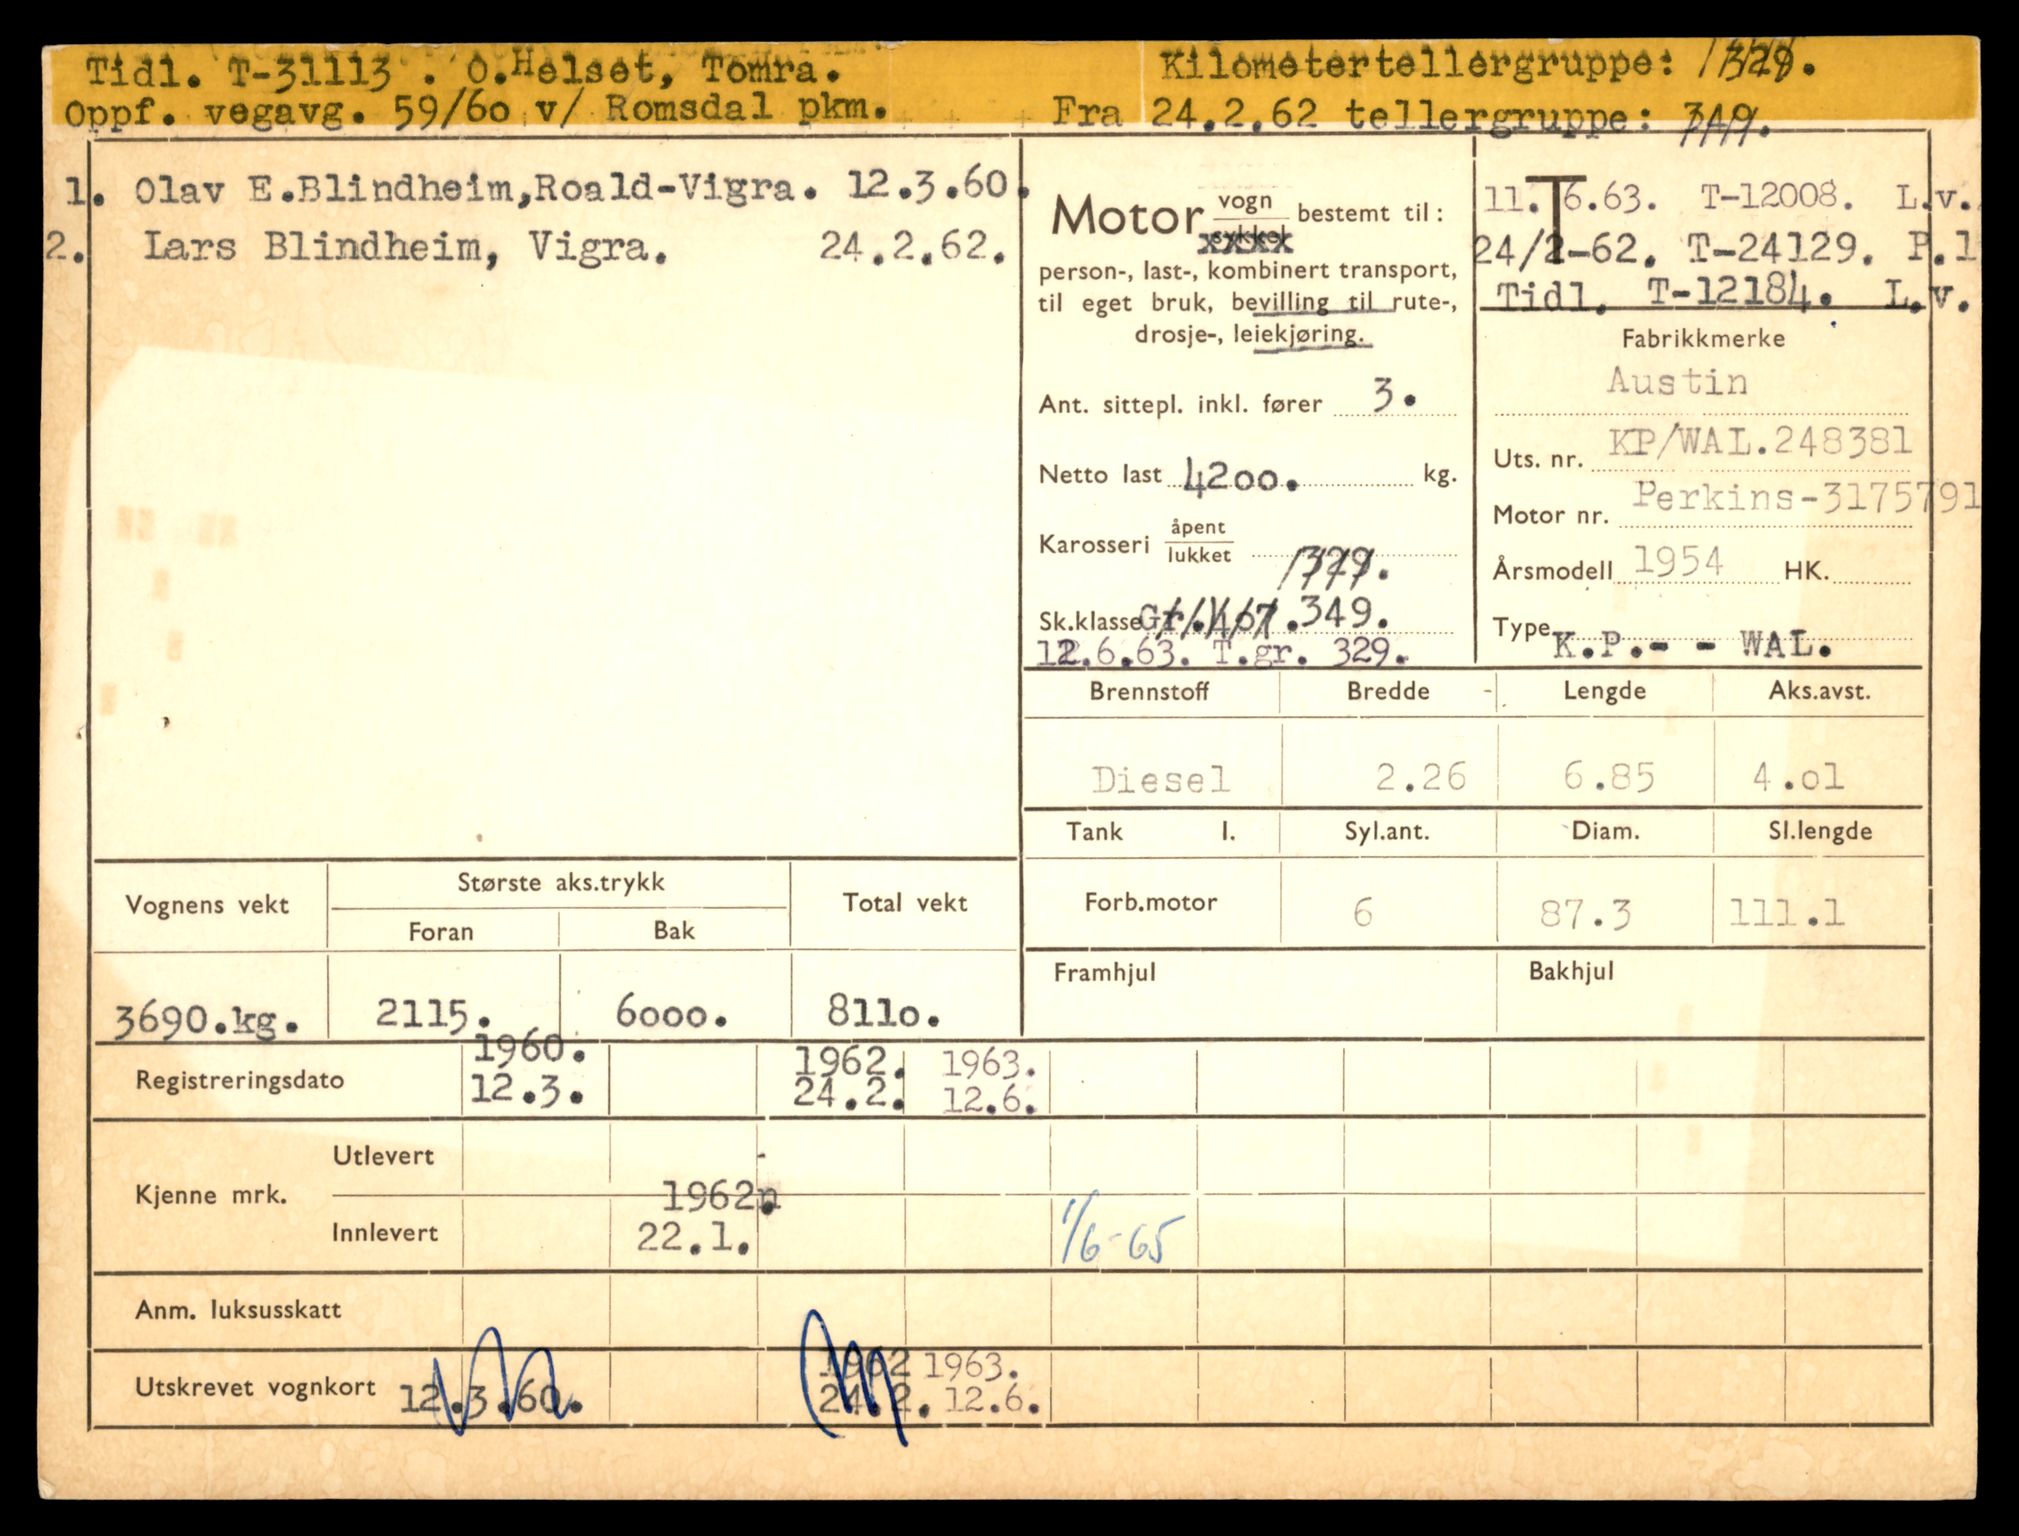 Tidl. T-31113 . O.Helset, Tomra.
Kilometertellergruppe: 329.
Oppf. vegavg. 59/60 v/ Romsdal pkm.
Fra 24.2.62 tellergruppe: 349.
1. Olav E.Blindheim,Roald-Vigra. 12.3.60.
2. Lars Blindheim, Vigra. 24.2.62.
Motor vogn
sykkel
bestemt til:
person-, last-, kombinert transport,
til eget bruk, bevilling til rute-,
drosje-, leiekjøring.
Ant. sittepl. inkl. fører 3.
Netto last 4200. kg.
Karosseri åpent
lukket
Sk.klasse Gr. 467.349.
12.6.63. T.gr. 329.
T
11. 6.63. T-12008. L.v.
24/2-62. T-24129. P.l
Tidl. T-12184. L.v.
Fabrikkmerke
Austin
Uts. nr. KP/WAL.248381
Motor nr. Perkins-3175791
Årsmodell 1954 HK.
Type K.P.- - WAL.
Brennstoff Bredde Lengde Aks.avst.
Diesel 2.26 6.85 4.01
Tank l. Syl.ant. Diam. Sl.lengde
Forb.motor 6 87.3 111.1
Framhjul Bakhjul
Vognens vekt Største aks.trykk Total vekt
Foran Bak
3690.kg. 2115. 6000. 8110.
1960. 1962. 1963.
Registreringsdato 12.3. 24.2. 12.6.
Utlevert
Kjenne mrk. 1962
Innlevert 22.1. 1/6-65
Anm. luksusskatt
1962 1963.
Utskrevet vognkort 12.3.60. 24.2. 12.6.